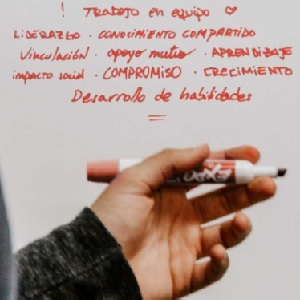 ! TRABAJO en equipo ♡
LIDERAZGO · CONOCIMIENTO COMPARTIDO
Vinculación · apoyo mutuo · APRENDIZAJE
impacto social · COMPROMISO · CRECIMIENTO
Desarrollo de habilidades